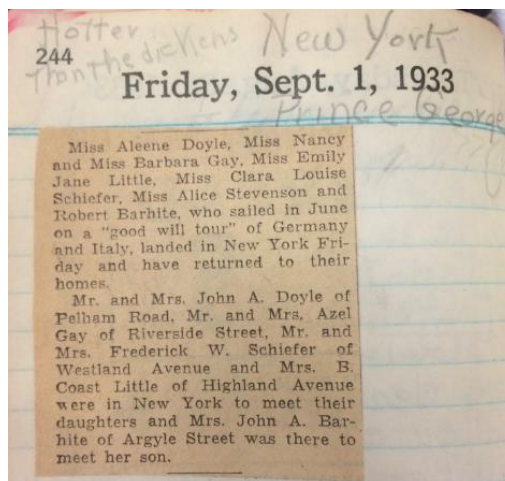 Hotter
than the dickens New York
244
Friday, Sept. 1, 1933
Prince George
Miss Aleene Doyle, Miss Nancy
and Miss Barbara Gay, Miss Emily
Jane Little, Miss Clara Louise
Schiefer, Miss Alice Stevenson and
Robert Barhite, who sailed in June
on a "good will tour" of Germany
and Italy, landed in New York Fri-
day and have returned to their
homes.
Mr. and Mrs. John A. Doyle of
Pelham Road, Mr. and Mrs. Azel
Gay of Riverside Street, Mr. and
Mrs. Frederick W. Schiefer of
Westland Avenue and Mrs. B.
Coast Little of Highland Avenue
were in New York to meet their
daughters and Mrs. John A. Bar-
hite of Argyle Street was there to
meet her son.